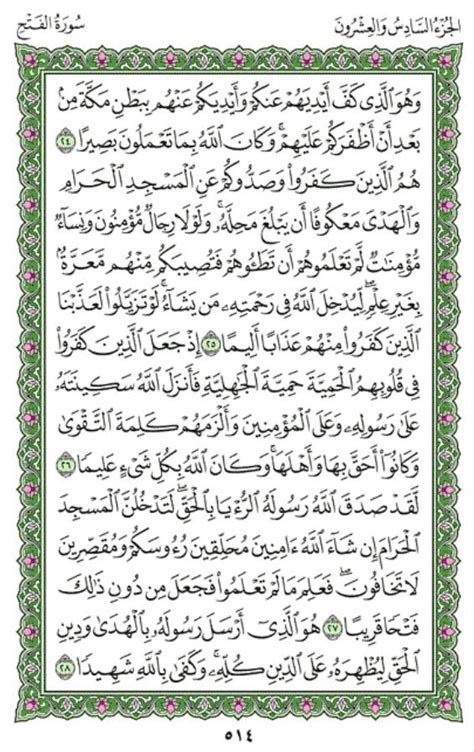 الجزء السادس والعشرون
سورة الفتح
وَهُوَ ٱلَّذِى كَفَّ أَيْدِيَهُمْ عَنكُمْ وَأَيْدِيَكُمْ عَنْهُم بِبَطْنِ مَكَّةَ مِنۢ
بَعْدِ أَنْ أَظْفَرَكُمْ عَلَيْهِمْ ۚ وَكَانَ ٱللَّهُ بِمَا تَعْمَلُونَ بَصِيرًا ٢٤
هُمُ ٱلَّذِينَ كَفَرُوا۟ وَصَدُّوكُمْ عَنِ ٱلْمَسْجِدِ ٱلْحَرَامِ
وَٱلْهَدْىَ مَعْكُوفًا أَن يَبْلُغَ مَحِلَّهُۥ ۚ وَلَوْلَا رِجَالٌ مُّؤْمِنُونَ وَنِسَآءٌ
مُّؤْمِنَـٰتٌ لَّمْ تَعْلَمُوهُمْ أَن تَطَـُٔوهُمْ فَتُصِيبَكُم مِّنْهُم مَّعَرَّةٌۢ
بِغَيْرِ عِلْمٍ ۖ لِّيُدْخِلَ ٱللَّهُ فِى رَحْمَتِهِۦ مَن يَشَآءُ ۚ لَوْ تَزَيَّلُوا۟ لَعَذَّبْنَا
ٱلَّذِينَ كَفَرُوا۟ مِنْهُمْ عَذَابًا أَلِيمًا ٢٥ إِذْ جَعَلَ ٱلَّذِينَ كَفَرُوا۟
فِى قُلُوبِهِمُ ٱلْحَمِيَّةَ حَمِيَّةَ ٱلْجَـٰهِلِيَّةِ فَأَنزَلَ ٱللَّهُ سَكِينَتَهُۥ
عَلَىٰ رَسُولِهِۦ وَعَلَى ٱلْمُؤْمِنِينَ وَأَلْزَمَهُمْ كَلِمَةَ ٱلتَّقْوَىٰ
وَكَانُوٓا۟ أَحَقَّ بِهَا وَأَهْلَهَا ۚ وَكَانَ ٱللَّهُ بِكُلِّ شَىْءٍ عَلِيمًا ٢٦
لَّقَدْ صَدَقَ ٱللَّهُ رَسُولَهُ ٱلرُّءْيَا بِٱلْحَقِّ ۖ لَتَدْخُلُنَّ ٱلْمَسْجِدَ
ٱلْحَرَامَ إِن شَآءَ ٱللَّهُ ءَامِنِينَ مُحَلِّقِينَ رُءُوسَكُمْ وَمُقَصِّرِينَ
لَا تَخَافُونَ ۖ فَعَلِمَ مَا لَمْ تَعْلَمُوا۟ فَجَعَلَ مِن دُونِ ذَٰلِكَ
فَتْحًا قَرِيبًا ٢٧ هُوَ ٱلَّذِىٓ أَرْسَلَ رَسُولَهُۥ بِٱلْهُدَىٰ وَدِينِ
ٱلْحَقِّ لِيُظْهِرَهُۥ عَلَى ٱلدِّينِ كُلِّهِۦ ۚ وَكَفَىٰ بِٱللَّهِ شَهِيدًا ٢٨
٥١٤